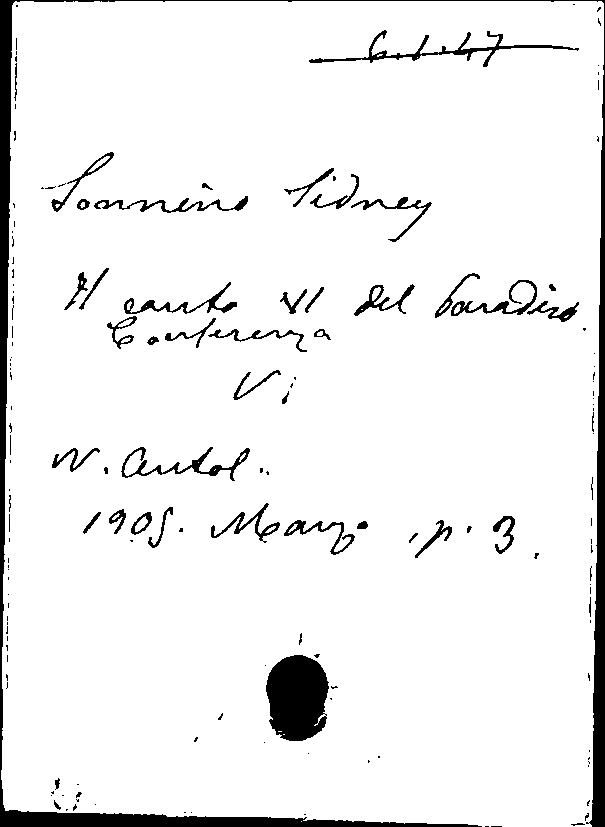 6.1.47
Sonnino Sidney
Il canto VI del Paradiso.
Conferenza
V;
N. Antol.
1905. Marzo, p. 3.